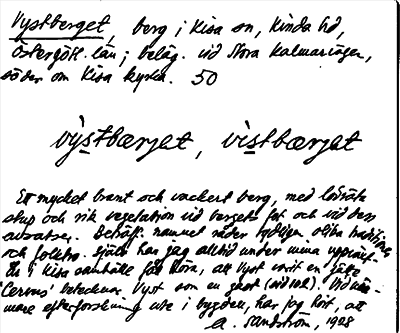 Vystberget, berg i Kisa sn, Kinda hd,
Östergötl. län; beläg. vid Stora Kalmarsägen,
söder om Kisa kyrka. 50
vy̱stbærjet, vi̱stbærjet
Ett mycket brant och vackert berg, med lodräta
stup och rik vegetation vid bergets fot och vid dess
avsatser. Beträff. namnet råder tydligen olika traditioner
och folketro. Själv har jag alltid under mina uppväxt-
år i Kisa samhälle fått höra, att Vyst varit en jätte
Vyst som en vid
mare efterforskning ute i bygden, har jag hört, att
A. Sandström, 1928